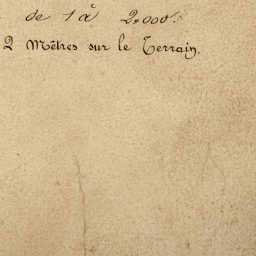 de 1 à 2,000.
2 Mètres sur le Terrain,